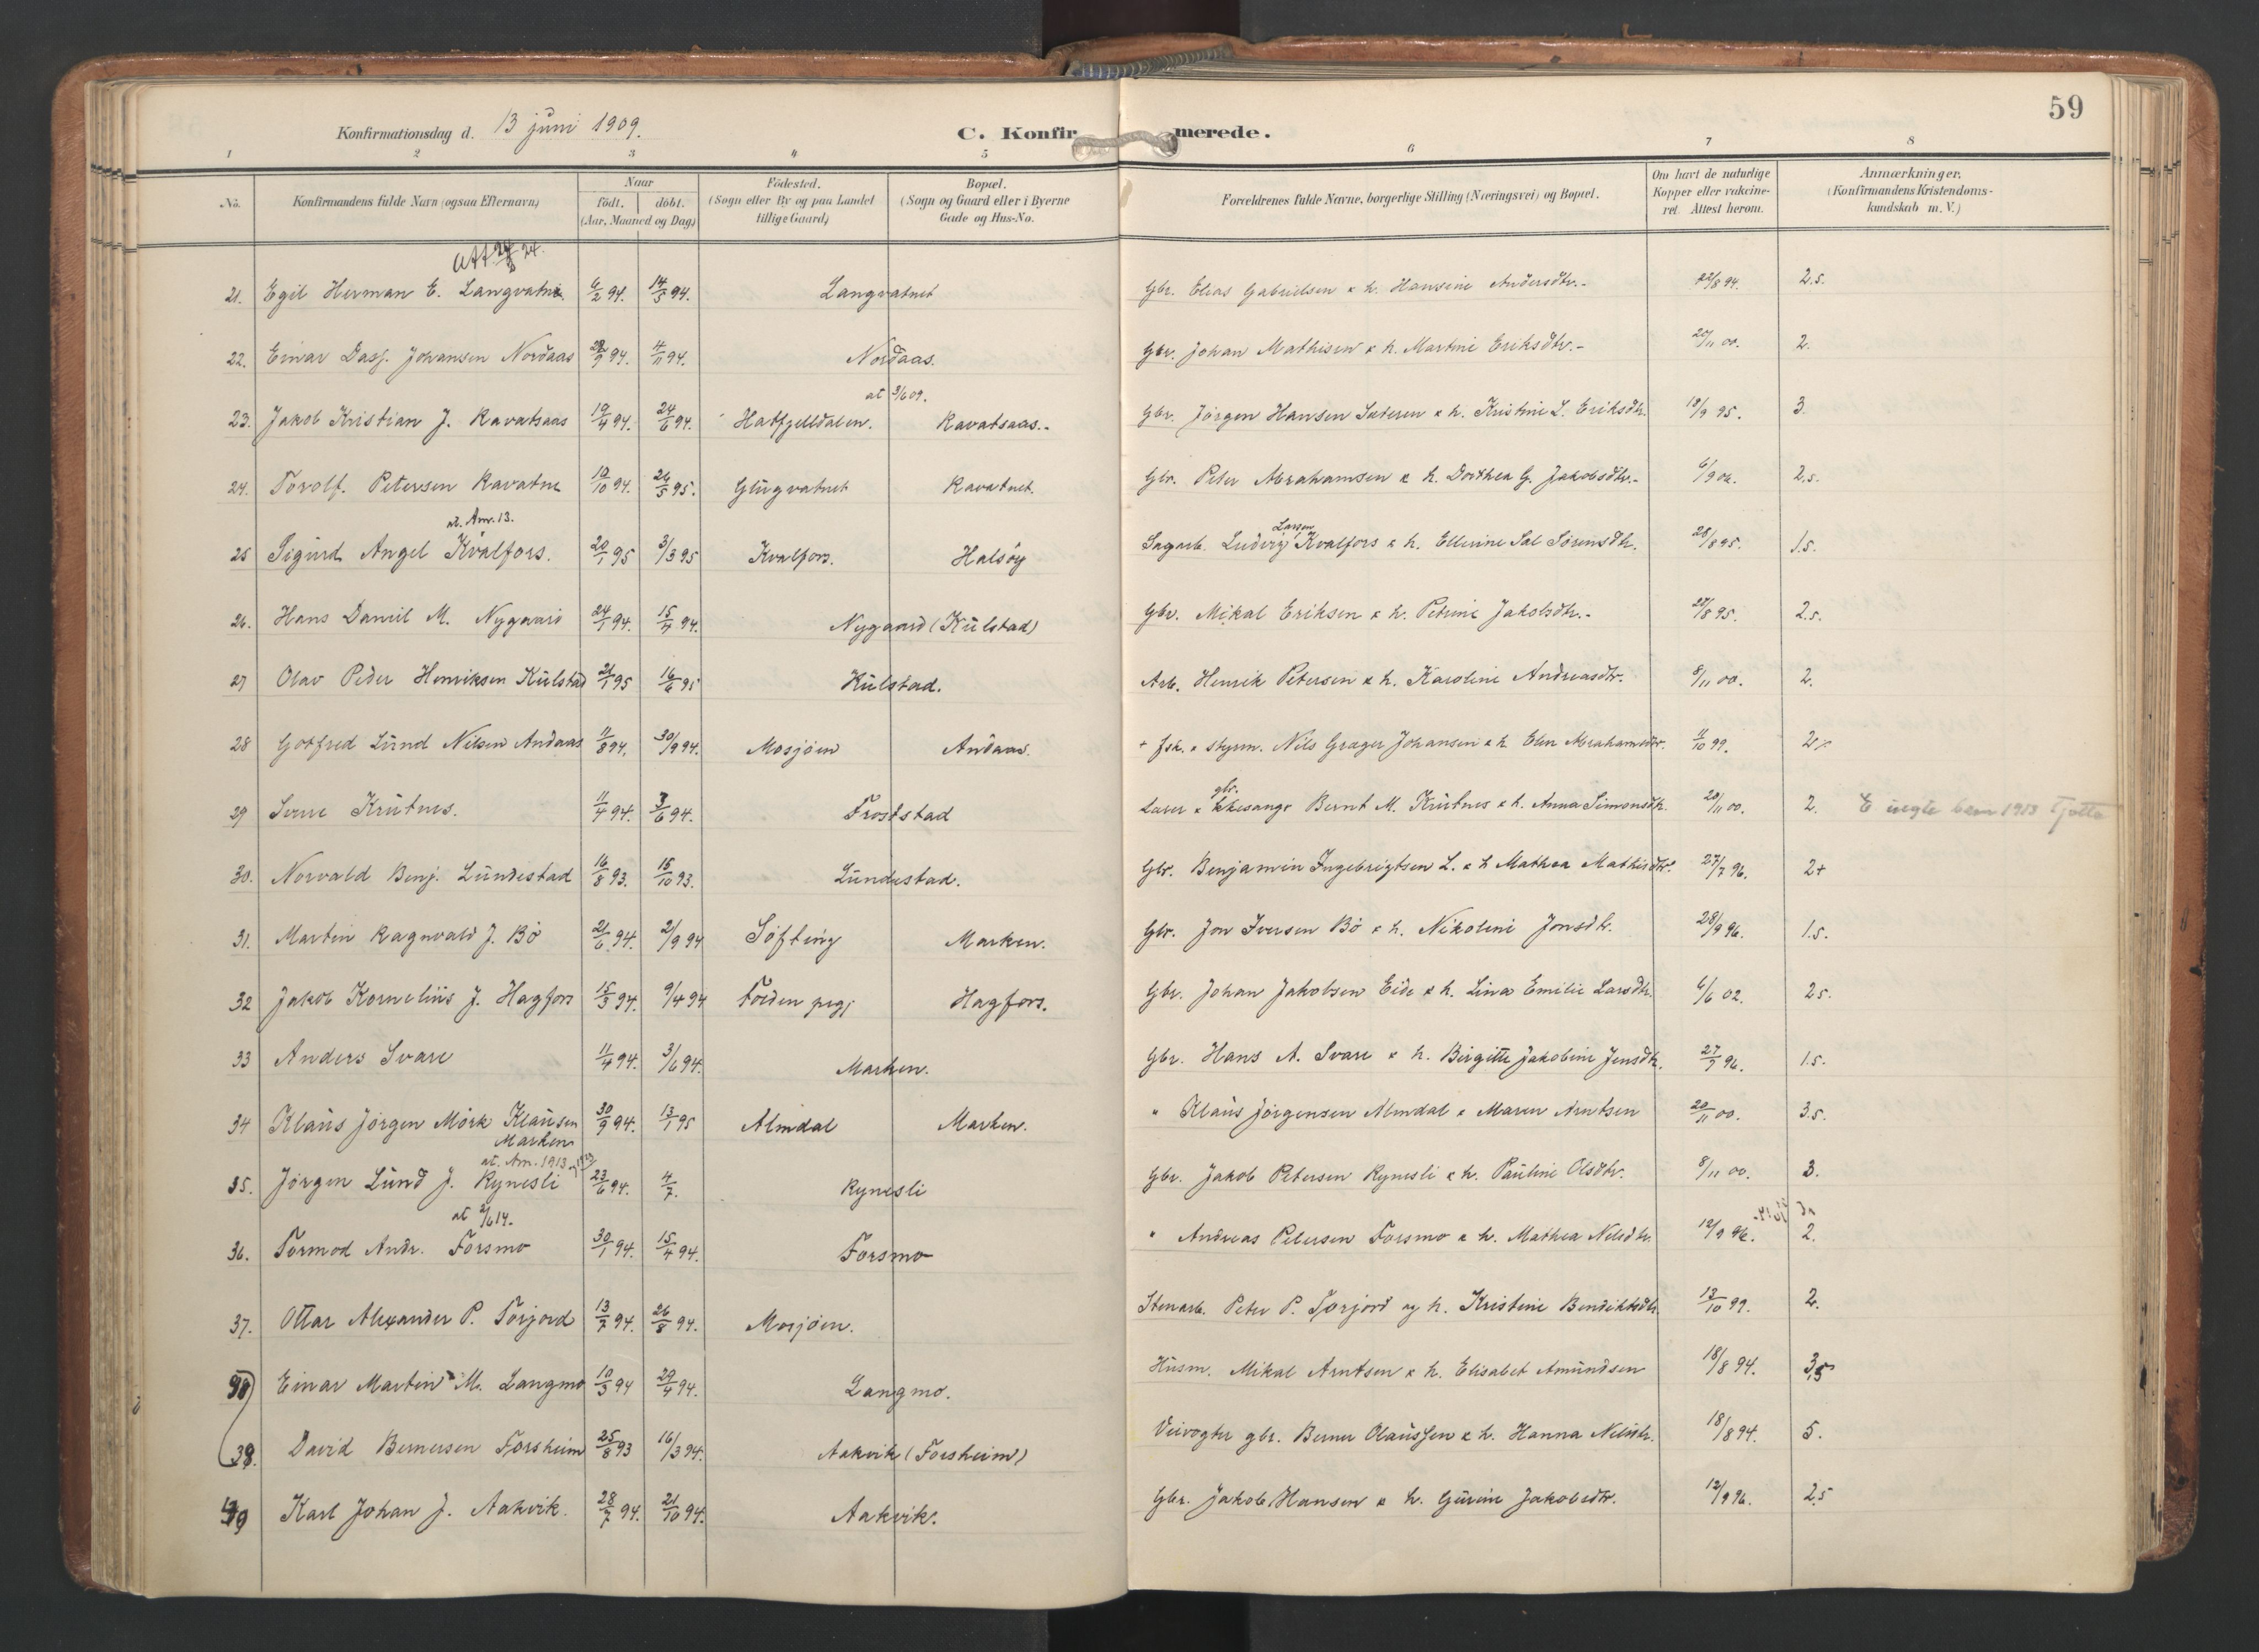 59
Konfirmationsdag d. 13 juni 1909. C. Konfirmerede.
1 2 3 4 5 6 7 8
No. Konfirmandens fulde Navn (ogsaa Efternavn) Naar født. døbt. (Aar, Maaned og Dag) Fødested. (Sogn eller By og paa Landet tillige Gaard) Bopæl. (Sogn og Gaard eller i Byerne Gade og Hus-No. Forældrenes fulde Navne, borgerlige Stilling (Næringsvei) og Bopæl. Om havt de naturlige Kopper eller vakcineret. Attest herom. Anmærkninger. (Konfirmandens Kristendomskundskab m. V.)
21. Egil Herman E. Langvatn 6/2 94. 14/5 94. Langvatnet Gbr. Elias Gabrielsen & h. Hansine Andersdtr.- 22/8 94. 2.5.
22. Einar Dass. Johansen Nordaas 9 94. 4/11 94. Nordaas. Gbr. Johan Mathisen & h. Martine Eriksdtr.- 20/11 00. 2.
at 3/6 09.
23. Jakob Kristian J. Ravatsaas 19/4 94. 24/6 94. Hatfjelldalen. Ravatsaas.- Gbr. Jørgen Hansen & h. Kristine L. Eriksdtr. 19/9 95. 3.
24. Torolf. Petersen Ravatne 10/10 94. 26/5 95. Glugvatnet Ravatnet. Gbr. Peter Abrahamsen & h. Dorthea G. Jakobsdtr.- 6/9 02. 2.5.
at. Amr. 13.
25 Sigurd Angel Kvalfors. 20/1 95 3/3 95 Kvalfors. Halsøy Sagarb. Ludvig Larsen Kvalfors & h. Ellerine Sal Sørensdtr. 28/8 95. 1.5.
26. Hans Daniel M. Nygaard 24/1 94. 15/4 94. Nygaard (Kulstad) Gbr. Mikal Eriksen & h. Petrine Jakobsdtr.- 28/8 95. 2.5.
27 Olav Peder Henriksen Kulstad 21/1 95 16/6 95 Kulstad. Arb. Henrik Petersen & h. Karoline Andreasdtr. 8/11 00. 2.
28 Gotfred Lund Nilsen Andaas 11/8 94. 30/9 94. Mosjøen Andaas. + fsk. & skyrm. Nils Græger Johansen & h. Elen Abrahamsdtr. 11/10 99. 2
29 Krutnes. 11/4 94. 3/6 94. Froststad Lærer & gbr. Bernt M. Krutnes & h. Anna Simonsdtr. 20/11 00. 2. E uegte barn 1913 Tjøtta
30. Norvald Benj. Lundestad 16/8 93. 15/10 93. Lundestad. Gbr. Benjamin Ingebrigtsen L. & h Mathea Mathisdtr. 27/7 96. 2+
31. Martin Ragnvald J. Bø 21/6 94. 2/9 94 Søfting Marken. Gbr. Jon Iversen Bø & h. Nikoline Jonsdtr. 28/9 96. 1.5.
32 Jakob Kornelius J. Hagfors 15/3 94. 9/4 94 Hagfors. Gbr. Johan Jakobsen Eide & h. Lina Emilie Larsdtr. 6/6 02. 2.5.
33 Anders Svare 11/4 94. 3/6 94. Marken. Gbr. Hans A. Svare & h. Birgitte Jakobine Jensdtr. 27/7 96. 1.5.
34 Klaus Jørgen Mørk Klausen Marken 30/9 94. 13/1 95 Almdal Marken. " Klaus Jørgensen Almdal & Maren Arntsen 20/11 00. 3.5.
at. Am. 1913
35. Jørgen Lund J. Rynesli 23/6 94. 4/7. Rynesli Gbr. Jakob Petersen Rynesli & h. Pauline Olsdtr. 8/11 00. 3.
at 2/6 14.
36. Tormod Andr. Forsmo 30/1 94. 15/4 94. Forsmo " Andreas Petersen Forsmo & h. Mathea Nilsdtr. 12/9 96. 2.
37. Ottar Alexander P. Torjord 13/7 94. 26/8 94. Mosjøen. Stenarb. Peter P. Torjord og h. Kristine Bendiktsdtr. 13/10 99. 2.
38 Einar Martin M. Langmo 10/3 94 29/4 94. Langmo. Husm. Mikal Arntsen & h. Elisabet Amundsen 18/8 94. 3,5
39. David Bernersen Forsheim 25/8 93 16/3 94. Aakvik (Forsheim) Veivogter gbr. Berner Olaussen & h. Hanna Nilsdtr. 18/8 94. 5.
40 Karl Johan J. Aakvik. 28/7 94. 21/10 94. Aakvik. Gbr. Jakob Hansen & h. Gurine Jakobsdtr. 12/9 96. 2.5